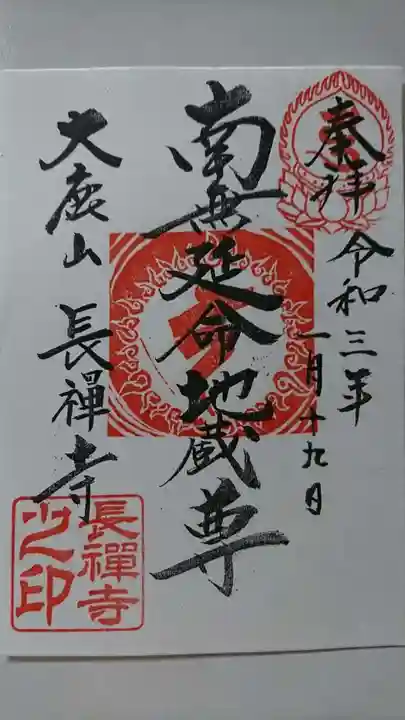 奉拝
令和三年
一月十九日
南無延命地蔵尊
大鹿山
長禅寺
長禪寺
之印